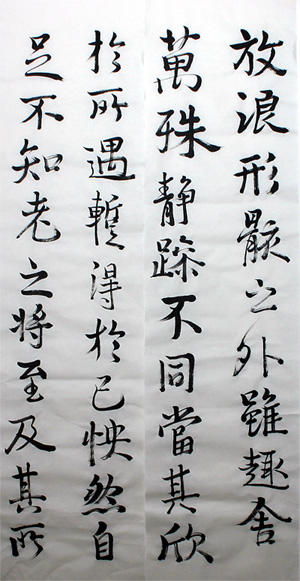 放浪形骸之外雖趣舍
萬殊静躁不同當其欣
於所遇蹔得於己怏然自
足不知老之將至及其所